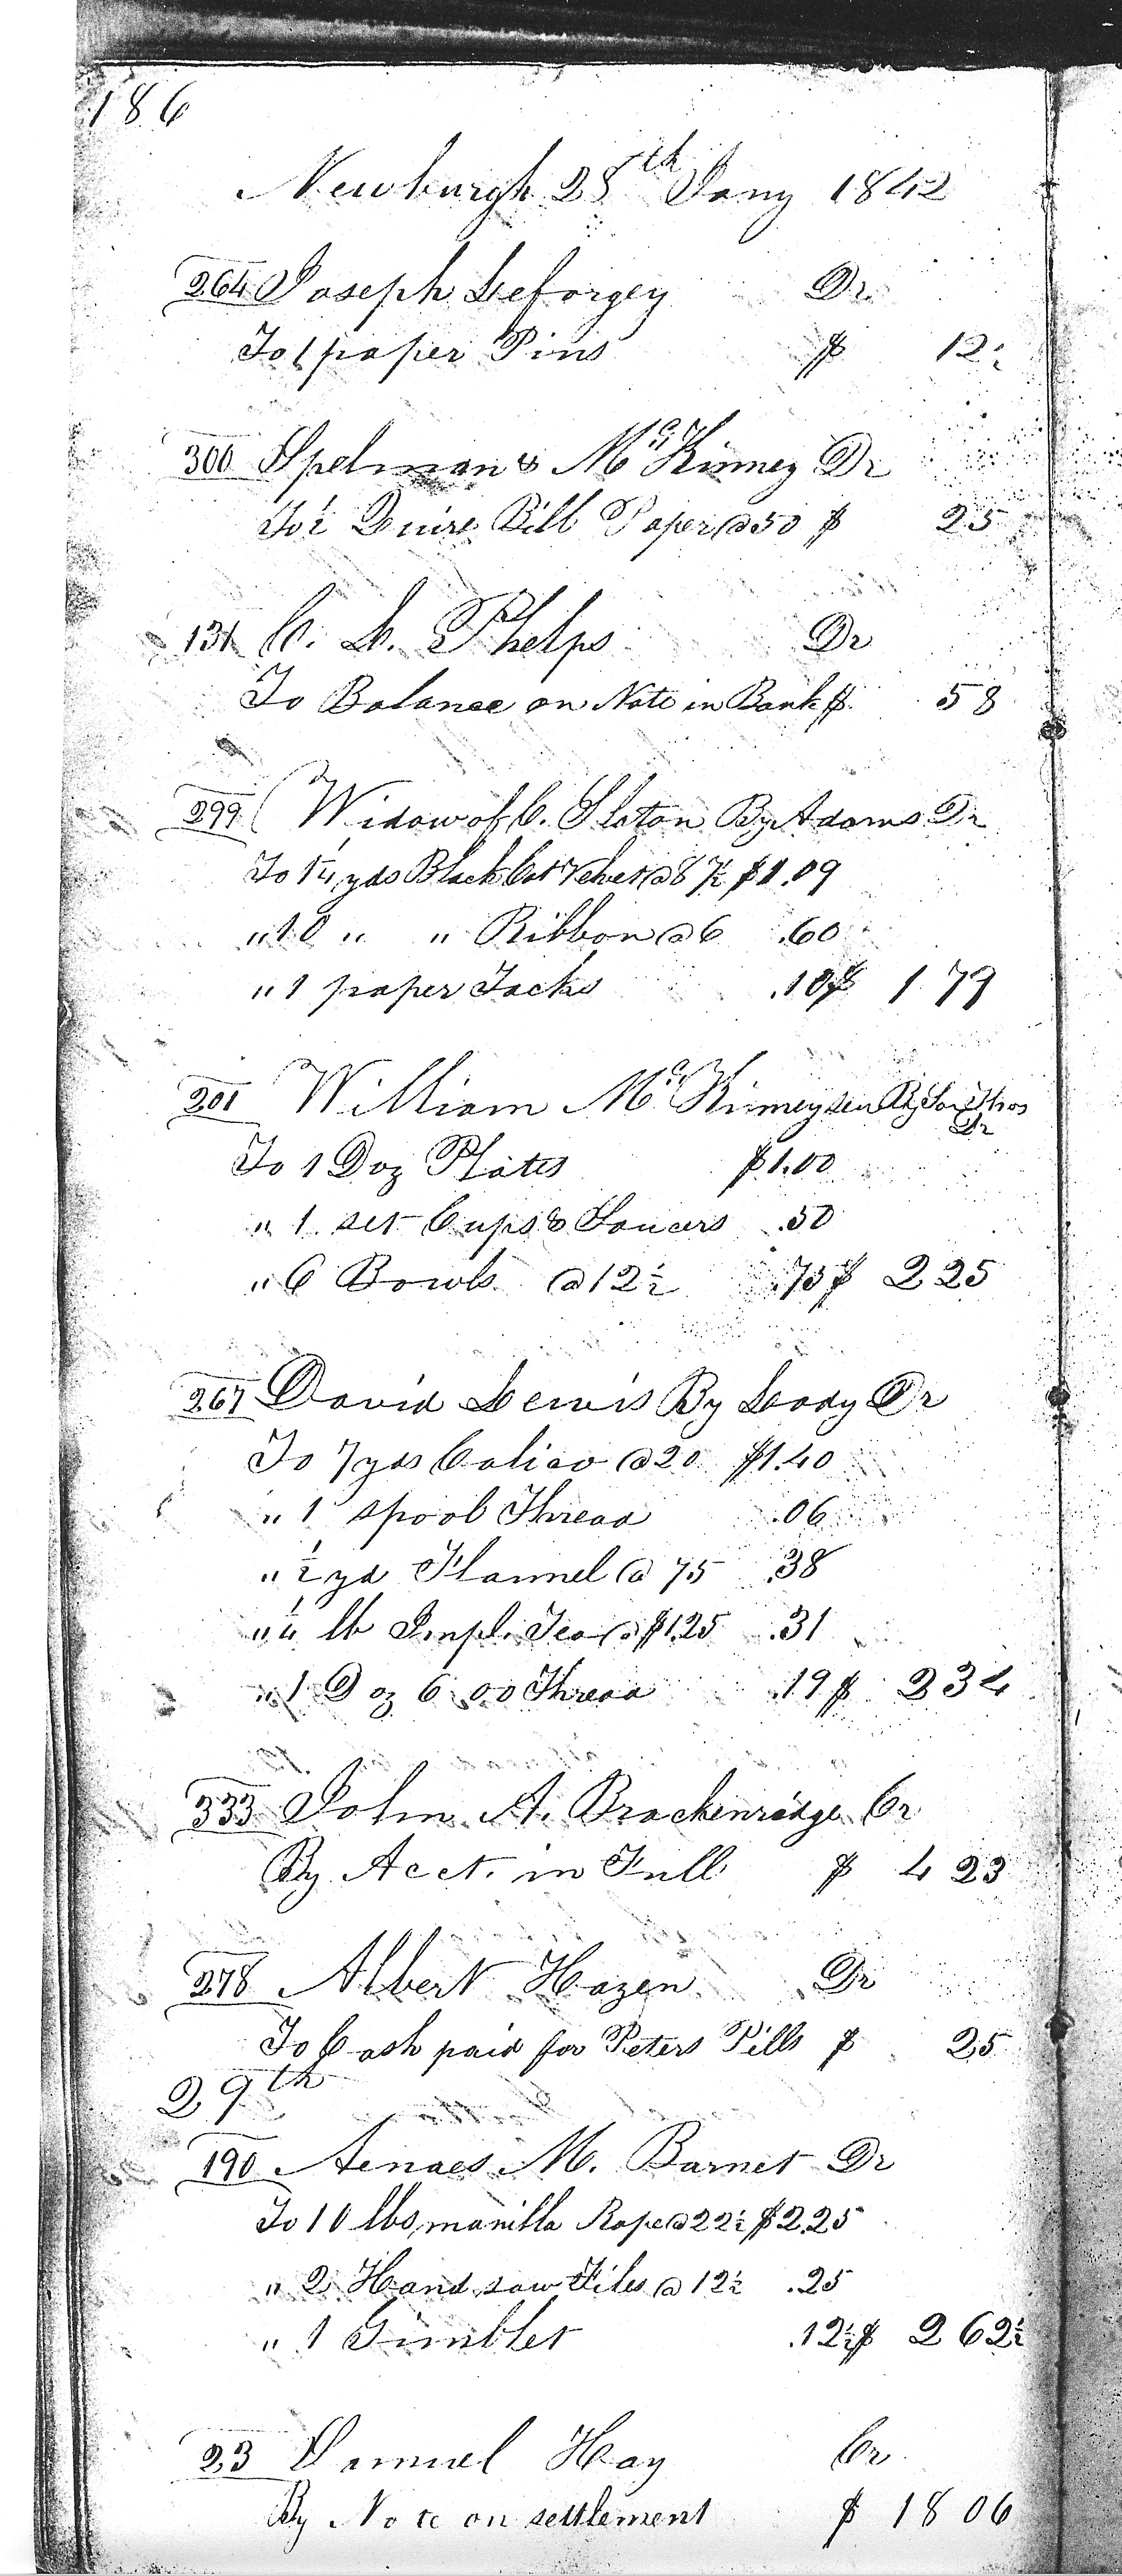 186
Newburgh 28th Jany 1842
264 Joseph Leforgey Dr
To 1 paper Pins $ 12½
300 Spelman & McKinney Dr
To ½ Quire Bill Paper @ 50 $ 25
131 C. L. Phelps Dr
To Balance on Note in Bank $ 58
299 Widow of C. Slaton By Adams Dr
To 1¼ yds Black Cot Velvet @ 87½ $1.09
" 10 " " Ribbon @ 6 .60
" 1 paper Tacks .10 $ 1 79
201 William McKinney sen By Son Thos
Dr
To 1 Doz Plates $1.00
" 1 set Cups & Saucers .50
" 6 Bowls @ 12½ .75 $ 2 25
267 David Lewis By Lady Dr
To 7 yds Calico @ 20 $1.40
" 1 spool Thread .06
" ½ yd Flannel @ 75 .38
" ¼ lb Impl. Tea @ $1.25 .31
" 1 Doz 6 00 Thread .19 $ 2 34
333 John A. Brackenridge Cr
By Acct. in Full $ 4 23
278 Albert Hazen Dr
To Cash paid for Peters Pills $ 25
29th
190 Aenaes M. Barnet Dr
To 10 lbs manilla Rope @ 22½ $2.25
" 2 Hand saw Files @ 12½ .25
" 1 Gimblet .12½ $ 2 62½
23 Samuel Hay Cr
By Note on settlement $ 18 06